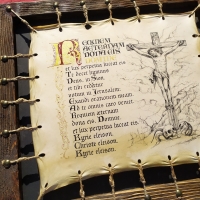 Requiem
aeternam
dona eis
et lux perpetua luceat eis.
Te decet hymnus
Deus, in Sion,
et tibi reddetur
votum in Jerusalem.
Exaudi orationem meam,
Ad te omnis caro veniet.
Requiem eternam
dona eis, Domine,
et lux perpetua luceat eis.
Kyrie eleison,
Christe eleison,
Kyrie eleison.